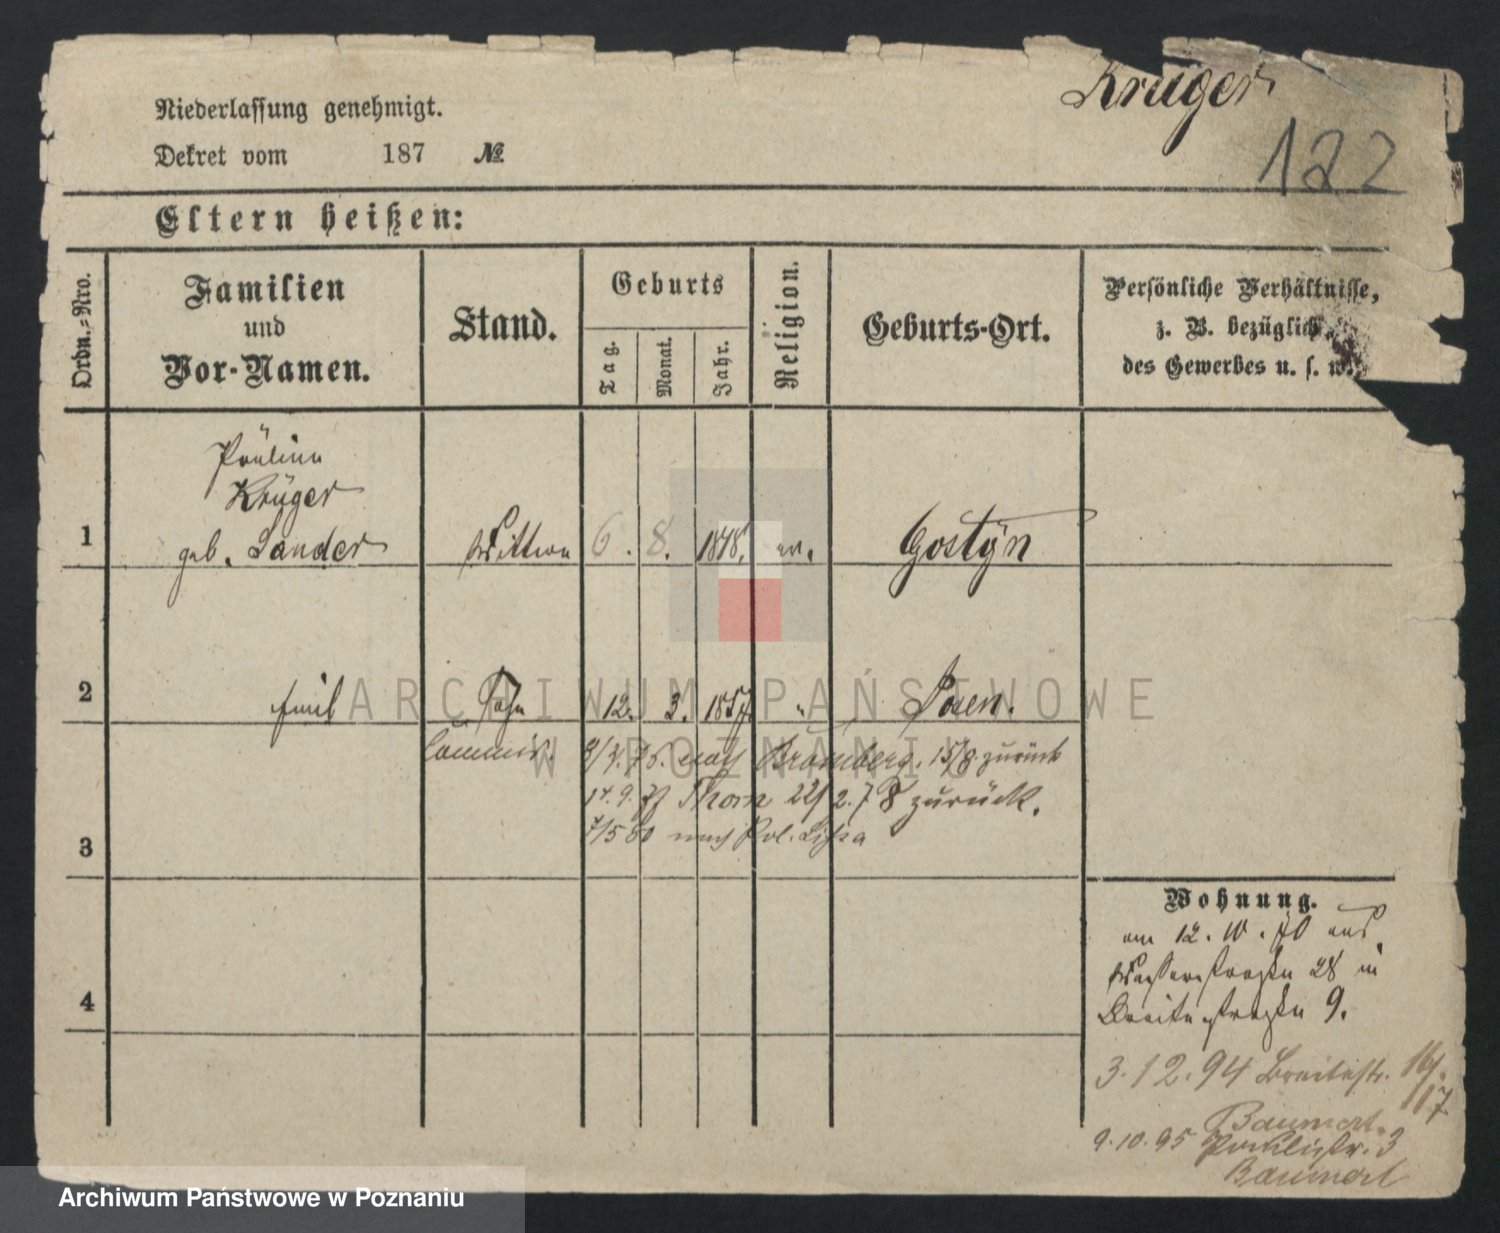 Krüger
122
Niederlassung genehmigt.
Dekret vom 187 №
Eltern heißen:
Ordn.=Nro.
Familien
und
Vor-Namen.
Stand.
Geburts
Tag.
Monat.
Jahr.
Religion.
Geburts-Ort.
Persönliche Verhältnisse,
z. B. bezüglich
des Gewerbes u. s. w.
Pauline
Krüger
1 geb. Sander Wittwe 6. 8. ev. Gostÿn
2 Emil Sohn 12. 3. " Posen.
Commis. nach Bromberg. 15/8 zurück
Thorn 22/2.78 zurück.
3 7/5 80 nach Pol. Lissa
4
Wohnung.
am 12. 10. 70 aus
Wasserstraße 28 in
Breitestraße 9.
3.12.94 Breitestr. 16/17
Baumert.
9.10.95 3
Baumert
ARCHIWUM PAŃSTWOWE
W POZNANIU
Archiwum Państwowe w Poznaniu